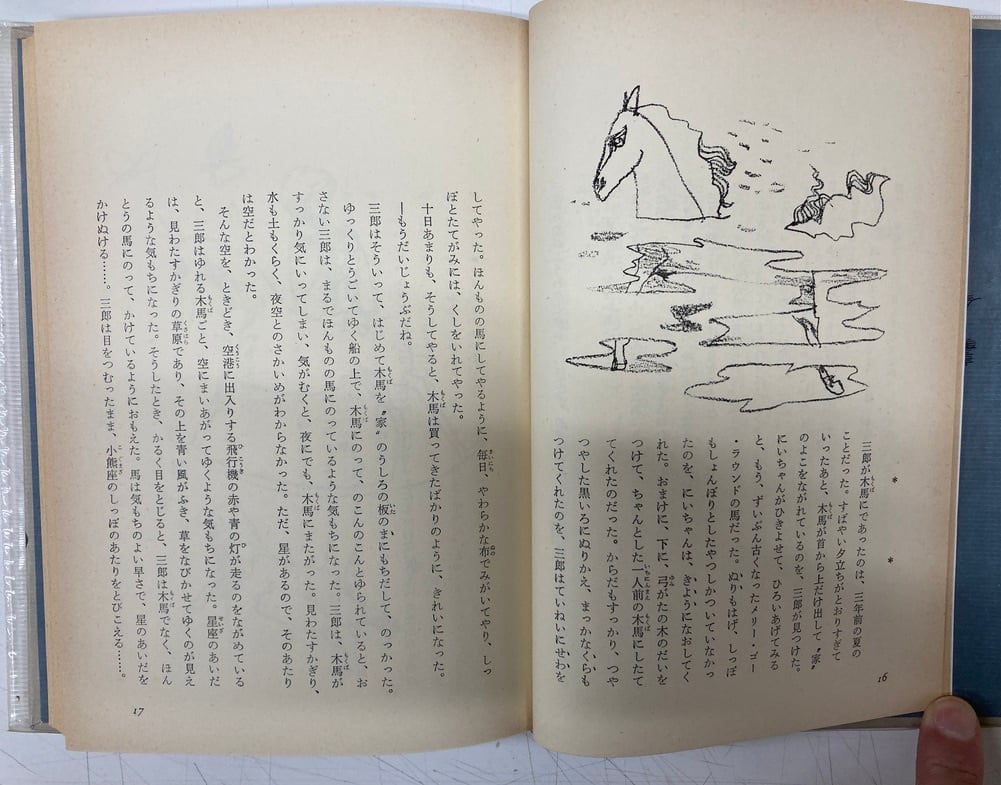 ＊　＊
三郎が木馬にであったのは、三年前の夏の
ことだった。すばやい夕立ちがとおりすぎて
いったあと、木馬が首から上だけ出して〝家〟
のよこをながれているのを、三郎が見つけた。
にいちゃんがひきよせて、ひろいあげてみる
と、もう、ずいぶん古くなったメリー・ゴー
・ラウンドの馬だった。ぬりもはげ、しっぽ
もしょんぼりとしたやつしかついていなかっ
たのを、にいちゃんは、きようになおしてく
れた。おまけに、下に、弓がたの木のだいを
つけて、ちゃんとした一人前の木馬にしたて
てくれたのだった。からだもすっかり、つや
つやした黒いろにぬりかえ、まっかなくらも
つけてくれたのを、三郎はていねいにせわを
16
してやった。ほんものの馬にしてやるように、毎日、やわらかな布でみがいてやり、しっ
ぽとたてがみには、くしをいれてやった。
十日あまりも、そうしてやると、木馬は買ってきたばかりのように、きれいになった。
―もうだいじょうぶだね。
三郎はそういって、はじめて木馬を〝家〟のうしろの板のまにもちだして、のっかった。
ゆっくりとうごいてゆく船の上で、木馬にのって、のこんのこんとゆられていると、お
さない三郎は、まるでほんものの馬にのっているような気もちになった。三郎は、木馬が
すっかり気にいってしまい、気がむくと、夜にでも、木馬にまたがった。見わたすかぎり、
水も土もくらく、夜空とのさかいめがわからなかった。ただ、星があるので、そのあたり
は空だとわかった。
そんな空を、ときどき、空港に出入りする飛行機の赤や青の灯が走るのをながめている
と、三郎はゆれる木馬ごと、空にまいあがってゆくような気もちになった。星座のあいだ
は、見わたすかぎりの草原であり、その上を青い風がふき、草をなびかせてゆくのが見え
るような気もちになった。そうしたとき、かるく目をとじると、三郎は木馬でなく、ほん
とうの馬にのって、かけているようにおもえた。馬は気もちのよい早さで、星のあいだを
かけぬける……。三郎は目をつむったまま、小熊座のしっぽのあたりをとびこえる……。
17